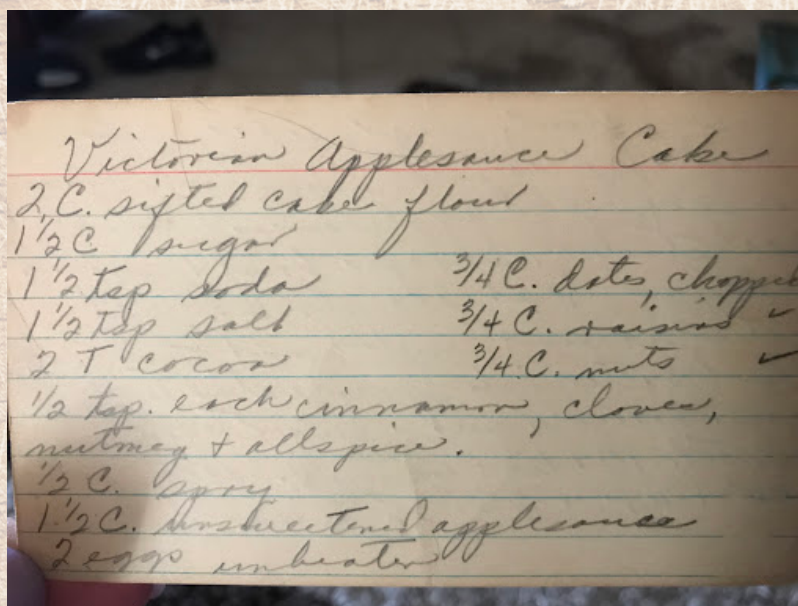 Victorian Applesauce Cake
2 C. sifted cake flour
1 1/2 C sugar
1 1/2 tsp soda
3/4 C. dates, chopped
1 1/2 tsp salt
3/4 C. raisins "
2 T cocoa
3/4 C. nuts "
1/2 tsp. each cinnamon, cloves,
nutmeg + allspice.
1/2 C. spry
1 1/2 C. unsweetened applesauce
2 eggs unbeaten